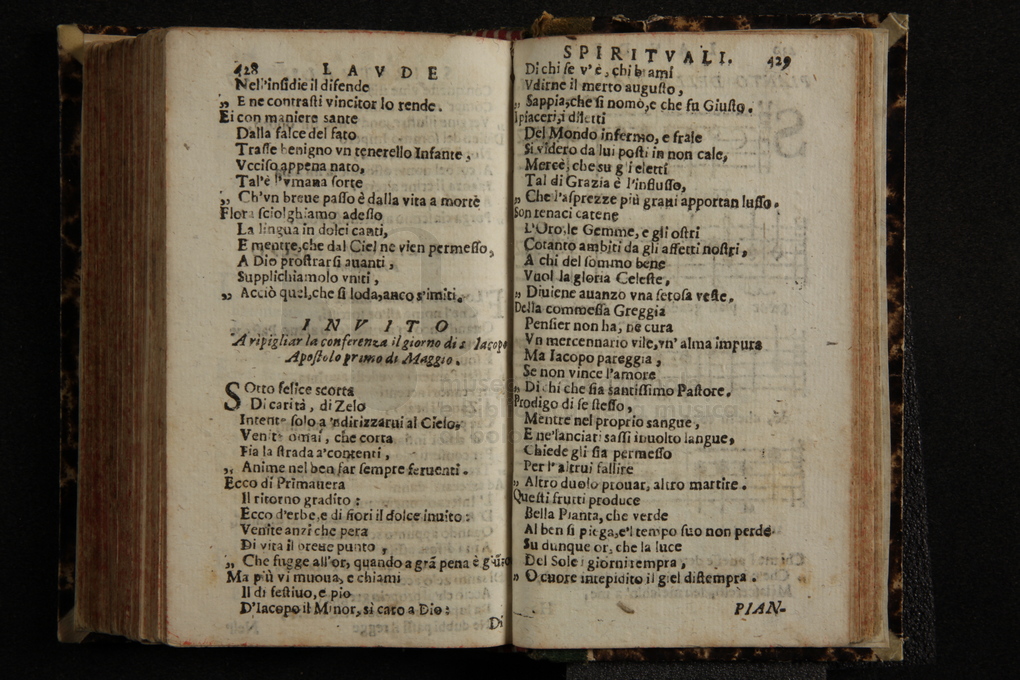 428 LAVDE
Nell'insidie il difende
„ E ne contrasti vincitor lo rende.
Ei con maniere sante
Dalla falce del fato
Trasse benigno vn tenerello Infante,
Vcciso appena nato,
Tal'è l'vmana sorte
„ Ch'vn breue passo è dalla vita a morte
Flora sciolghiamo adesso
La lingua in dolci canti,
E mentre, che dal Ciel ne vien permesso,
A Dio prostrarsi auanti,
Supplichiamolo vniti,
„ Acciò quel, che si loda, anco s'imiti.
INVITO
A ripigliar la conferenza il giorno di s. Iacopo
Apostolo primo di Maggio.
SOtto felice scorta
Di carità, di Zelo
Intente solo a 'ndirizzarui al Cielo,
Venite omai, che corta
Fia la strada a'contenti,
„ Anime nel ben far sempre feruenti.
Ecco di Primauera
Il ritorno gradito:
Ecco d'erbe, e di fiori il dolce inuito:
Venite anzi che pera
Di vita il breue punto,
„ Che fugge all'or, quando a grã pena è giũto
Ma più vi muoua, e chiami
Il di festiuo, e pio
D'Iacopo il Minor, sì caro a Dio:
Di
SPIRITVALI. 429
Di chi se v'è, chi brami
Vdirne il merto augusto,
„ Sappia, che si nomò, e che fu Giusto.
I piaceri, i diletti
Del Mondo infermo, e frale
Si videro da lui posti in non cale,
Mercè, che su gli eletti
Tal di Grazia è l'influsso,
„ Che l'asprezze più graui apportan lusso.
Son tenaci catene
L'Oro, le Gemme, e gli ostri
Cotanto ambiti da gli affetti nostri,
A chi del sommo bene
Vuol la gloria Celeste,
„ Diuiene auanzo vna setosa veste.
Della commessa Greggia
Pensier non ha, ne cura
Vn mercennario vile, vn' alma impura
Ma Iacopo pareggia,
Se non vince l'amore
„ Di chi che sia santissimo Pastore.
Prodigo di se stesso,
Mentre nel proprio sangue,
E ne'lanciati sassi inuolto langue,
Chiede gli sia permesso
Per l'altrui fallire
„ Altro duolo prouar, altro martire.
Questi frutti produce
Bella Pianta, che verde
Al ben si piega, e'l tempo suo non perde
Su dunque or, che la luce
Del Sole i giorni tempra,
„ O cuore intepidito il giel distempra.
PIAN-